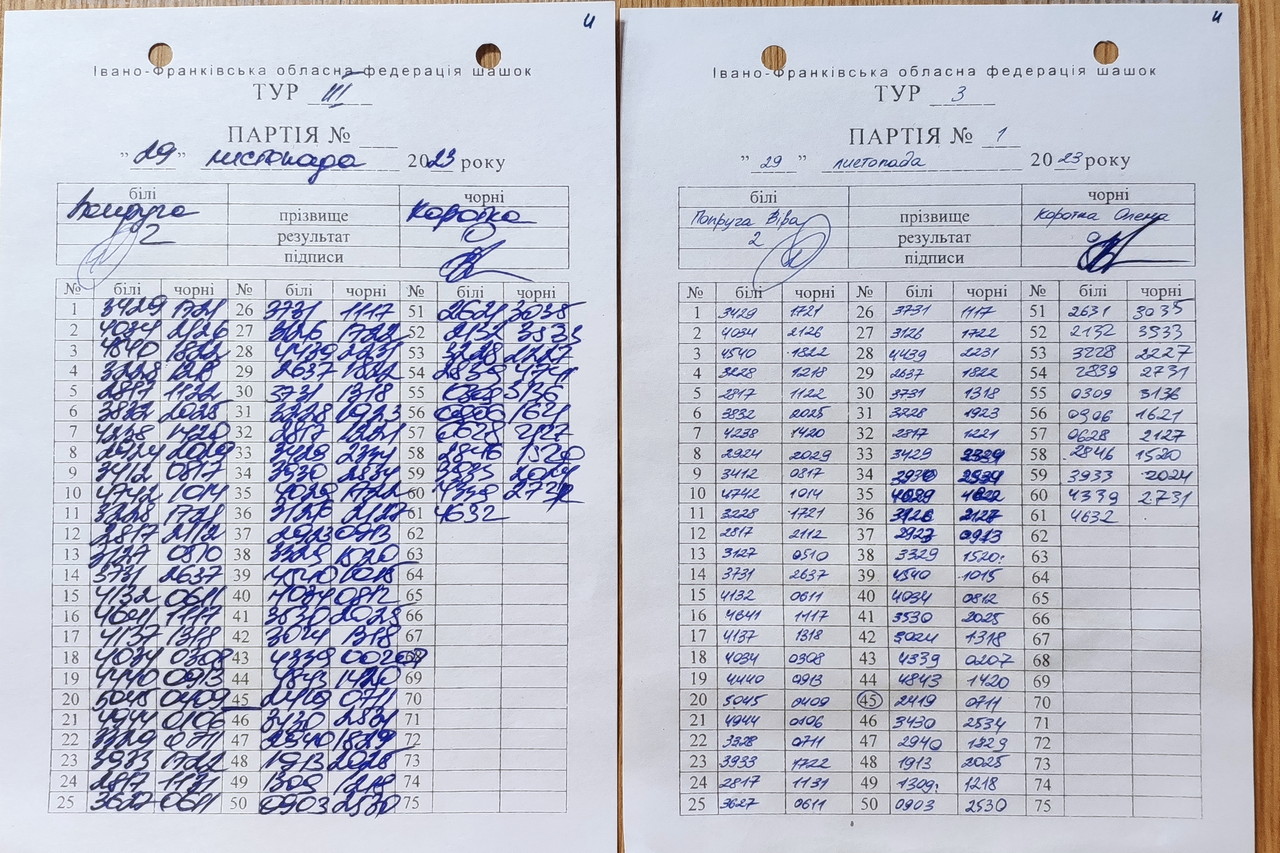 и
Івано-Франківська обласна федерація шашок
ТУР III
ПАРТІЯ №
" 29 " листопада 2023 року
білі чорні
Попруга прізвище Коротка
2 результат 0
підписи
№ білі чорні № білі чорні № білі чорні
1 3429 1721 26 3731 1117 51 2621 3035
2 4034 2126 27 3126 1722 52 2132 3533
3 4540 1822 28 4439 2231 53 3228 2227
4 3228 1218 29 2637 1822 54 2839 2731
5 2817 1122 30 3731 1318 55 0309 3136
6 3832 2025 31 3228 1923 56 0906 1621
7 4238 1420 32 2817 1221 57 0628 2127
8 2924 2029 33 3429 2334 58 2846 1520
9 3412 0817 34 3930 2834 59 3933 2024
10 4742 1014 35 4029 1722 60 4339 2731
11 3228 1721 36 3126 2127 61 4632
12 2817 2112 37 2923 0913 62
13 3127 0510 38 3329 1520 63
14 3731 2637 39 4540 1015 64
15 4132 0611 40 4034 0812 65
16 4641 1117 41 3530 2025 66
17 4137 1318 42 3024 1318 67
18 4034 0308 43 4339 0207
19 4440 0913 44 4843 1420 69
20 5045 0409 45 2419 0711 70
21 4944 0106 46 3430 2534 71
22 3329 0711 47 2940 1329 72
23 3933 1722 48 1913 2025 73
24 2817 1131 49 1309 1218 74
25 3627 0611 50 0903 2530 75
и
Івано-Франківська обласна федерація шашок
ТУР 3
ПАРТІЯ № 1
" 29 " листопада 2023 року
білі чорні
Попруга Віра прізвище Коротка Олена
2 результат 0
підписи
№ білі чорні № білі чорні № білі чорні
1 3429 1721 26 3731 1117 51 2631 3035
2 4034 2126 27 3126 1722 52 2132 3533
3 4540 1822 28 4439 2231 53 3228 2227
4 3228 1218 29 2637 1822 54 2839 2731
5 2817 1122 30 3731 1318 55 0309 3136
6 3832 2025 31 3228 1923 56 0906 1621
7 4238 1420 32 2817 1221 57 0628 2127
8 2924 2029 33 3429 2339 58 2846 1520
9 3412 0817 34 3930 59 3933 2024
10 4742 1014 35 4029 60 4339 2731
11 3228 1721 36 3126 2127 61 4632
12 2817 2112 37 2923 0913 62
13 3127 0510 38 3329 1520 63
14 3731 2637 39 4540 1015 64
15 4132 0611 40 4034 0812 65
16 4641 1117 41 3530 2025 66
17 4137 1318 42 3024 1318 67
18 4034 0308 43 4339 0207 68
19 4440 0913 44 4843 1420 69
20 5045 0409 45 2419 0711 70
21 4944 0106 46 3430 2534 71
22 3328 0711 47 2940 1329 72
23 3933 1722 48 1913 2025 73
24 2817 1131 49 1309 1218 74
25 3627 0611 50 0903 2530 75